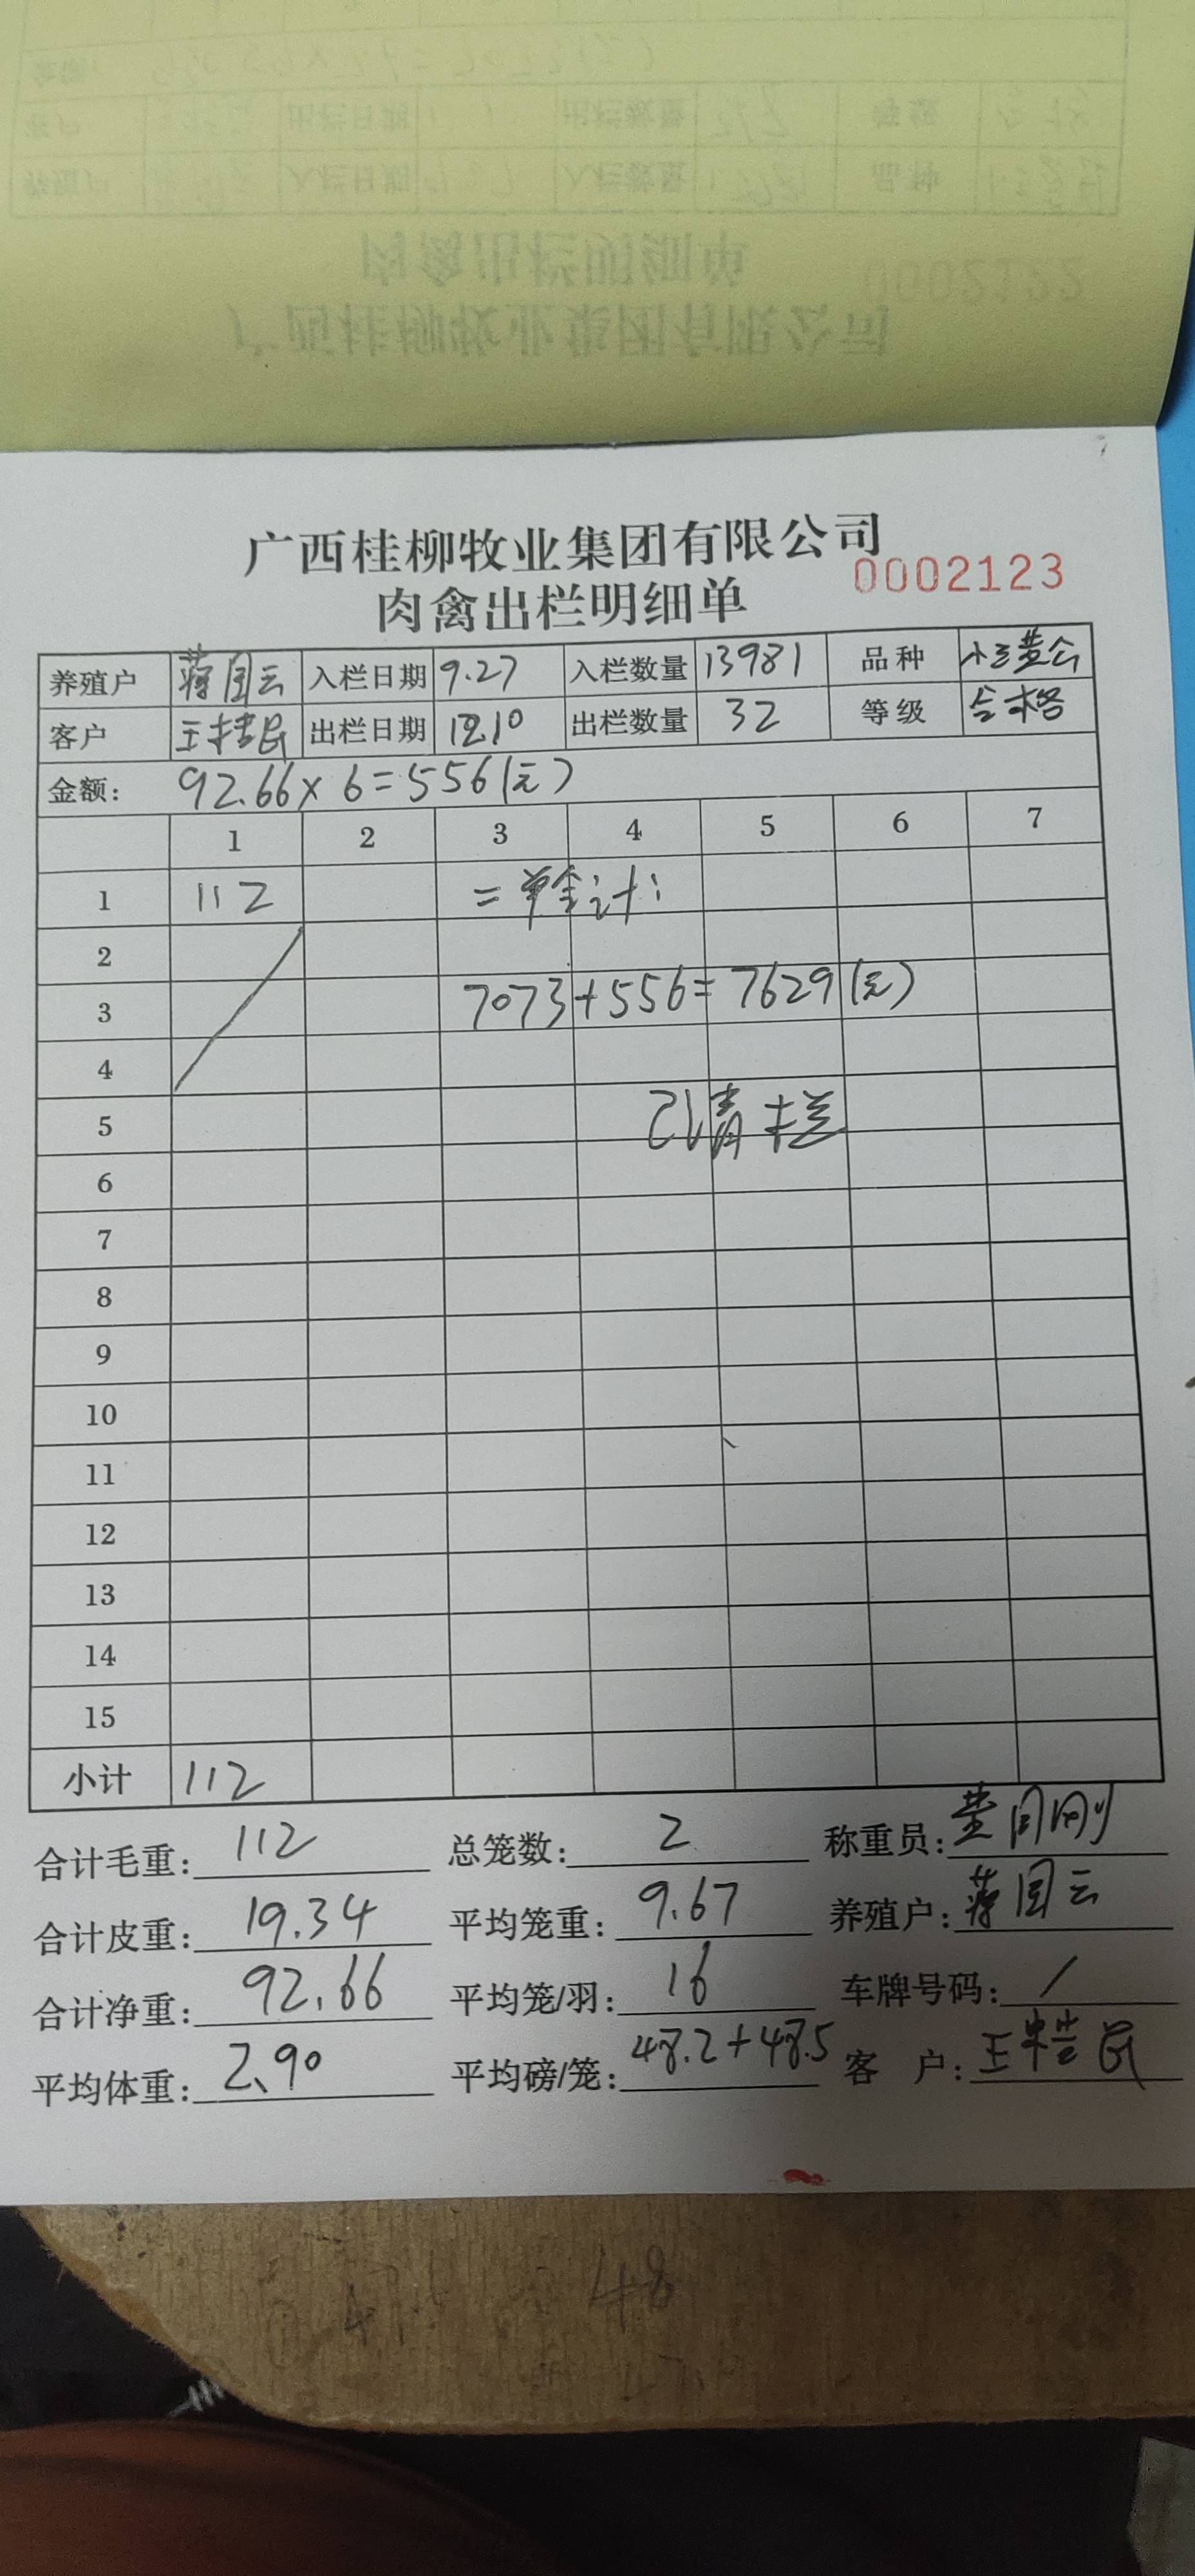 广西桂柳牧业集团有限公司
肉禽出栏明细单 0002123
养殖户 蒋国云 入栏日期 9.27 入栏数量 13981 品种 小三黄公
客户 出栏日期 12.10 出栏数量 32 等级 合格
金额: 92.66×6=556(元)
1 2 3 4 5 6 7
1 112 二单合计:
2
3 7073+556=7629(元)
4
5 已清栏
6
7
8
9
10
11
12
13
14
15
小计 112
合计毛重: 112 总笼数: 2 称重员: 黄国刚
合计皮重: 19.34 平均笼重: 9.67 养殖户: 蒋国云
合计净重: 92.66 平均笼/羽: 16 车牌号码: /
平均体重: 2.90 平均磅/笼: 48.2+48.5 客 户:
48